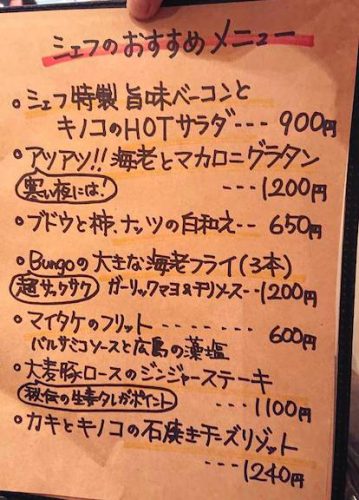 シェフのおすすめメニュー
・シェフ特製 旨味ベーコンと
キノコのHOTサラダ --- 900円
・アツアツ!! 海老とマカロニグラタン
寒い夜には! --- 1200円
・ブドウと柿、ナッツの白和え -- 650円
・Bungoの大きな海老フライ(3本)
超サックサク ガーリックマヨ&チリソース -- 1200円
・マイタケのフリット ------ 600円
バルサミコソースと広島の藻塩
・大麦豚ロースのジンジャーステーキ
秘伝の生姜タレがポイント ---- 1100円
・カキとキノコの石焼きチーズリゾット
--- 1240円